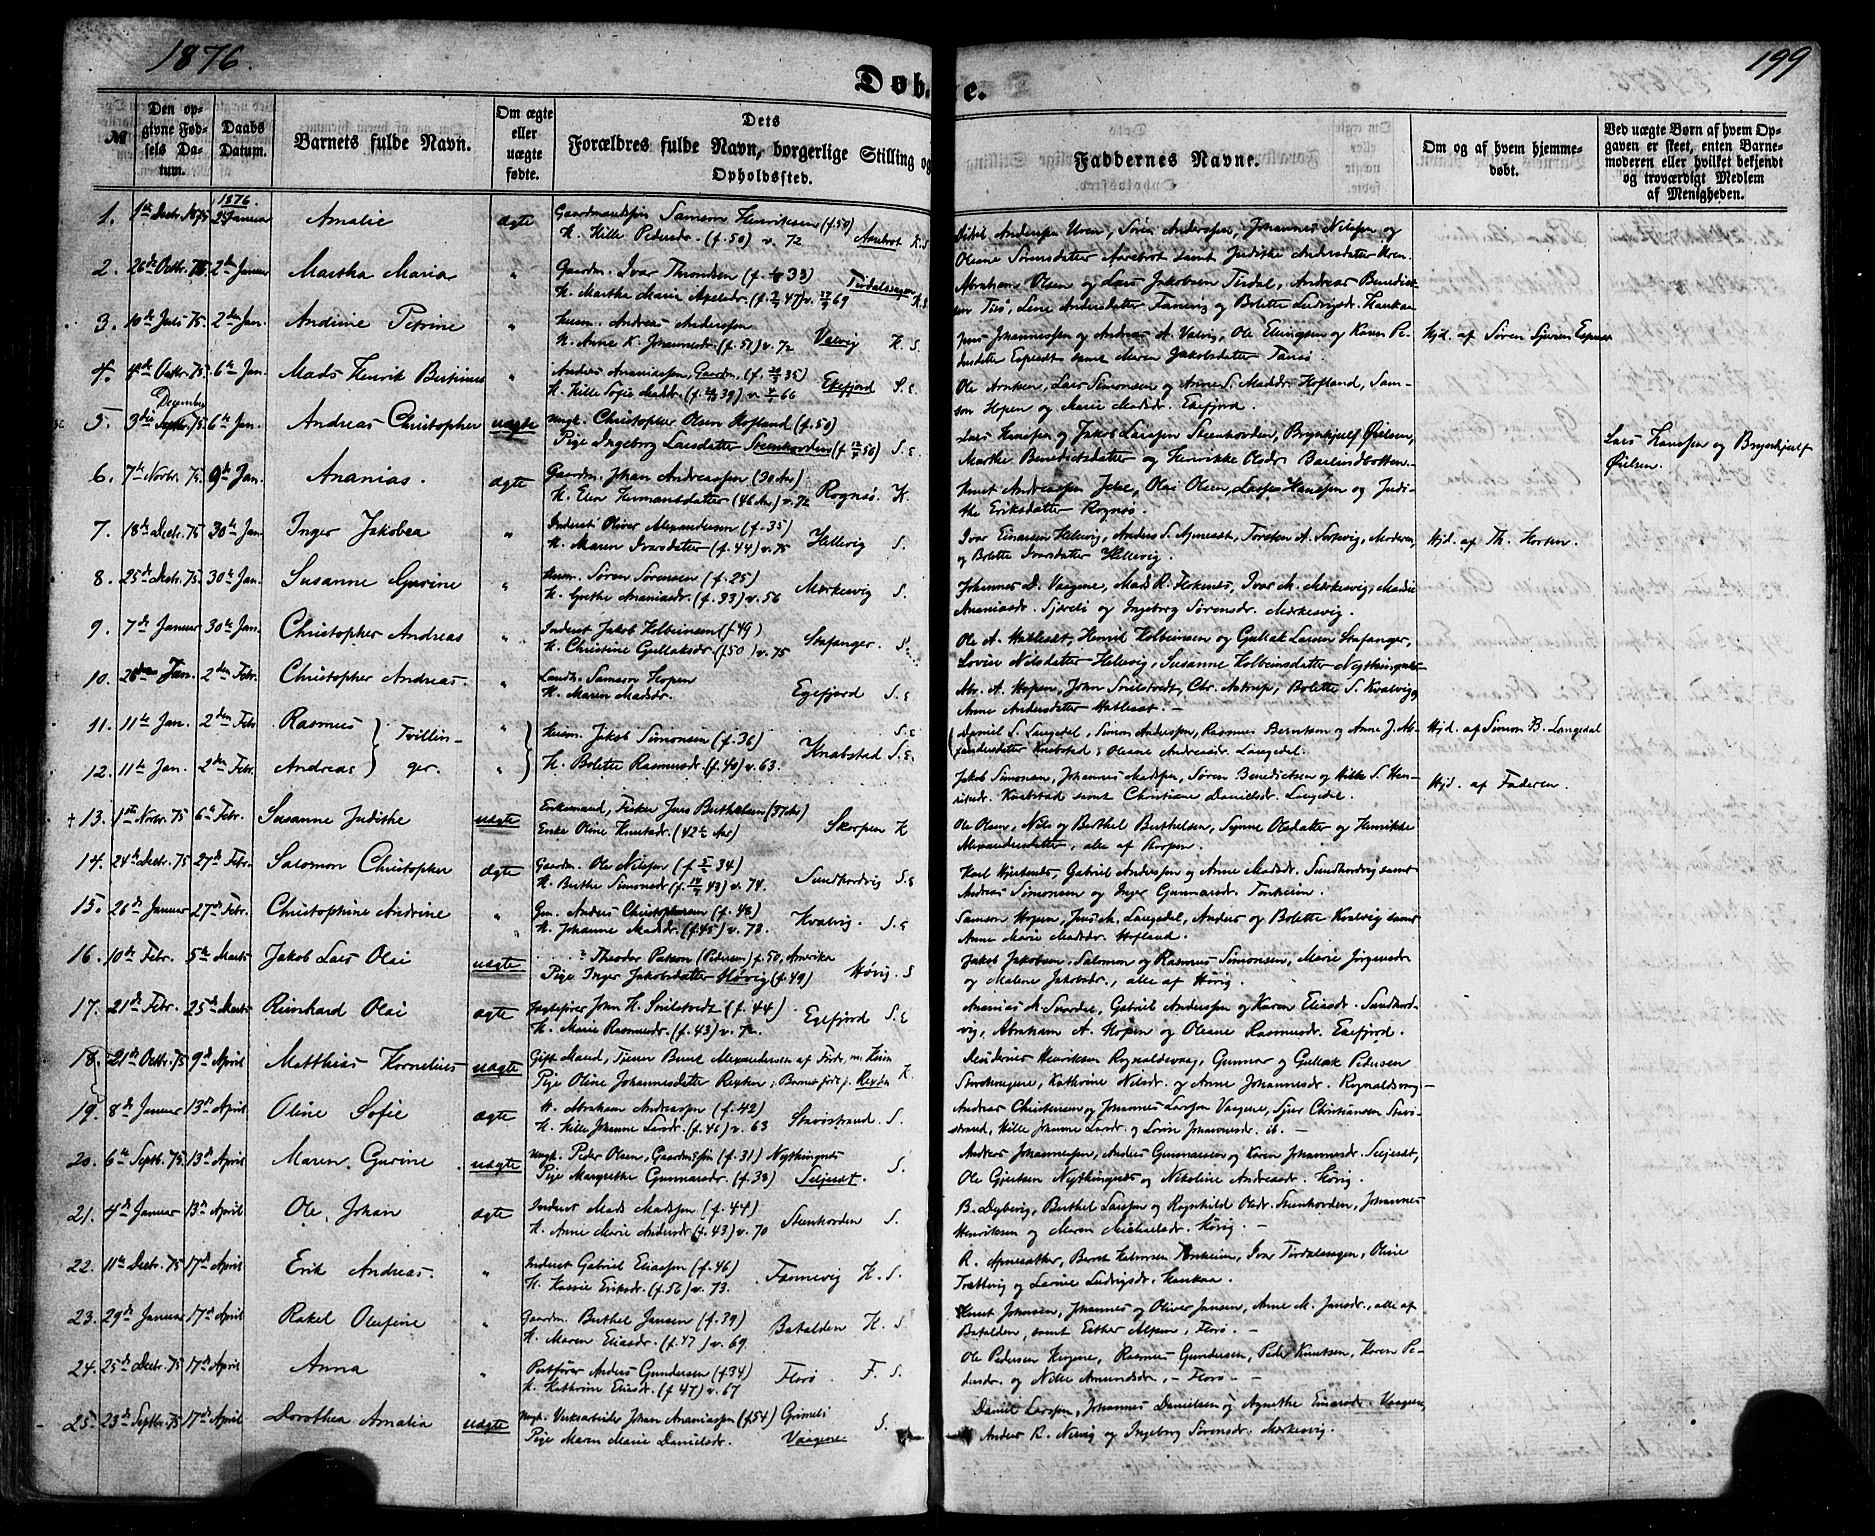 1876.
199
Døb
e.
№
Den op-
givne Fød-
sels Da-
tum.
Daabs
Datum.
Barnets fulde Navn.
Om ægte
eller
uægte
fødte.
Dets
Forældres fulde Navn, borgerlige Stilling og
Opholdssted.
Faddernes Navne.
Om og af hvem hjemme-
døbt.
Ved uægte Børn af hvem Op-
gaven er skeet, enten Barne-
moderen eller hvilket bekjendt
og troværdigt Medlem
af Menigheden.
1876.
1. 1ste Decbr. 1875 2den Januar Amalie ægte Gaardmandssøn Samson Henriksen (f. 50)
K. Hille Pedersdr. (f. 50) v. 72 Aarebrot K. S.
Anderssen Søren Anderssen, Johannes Nilssen og
Oleane Sørensdatter Aarebrot samt Judithe Andersdatter
2. 26de Octbr. 75 2den Januar Martha Maria " Gaardm. Ivar Throndsen (f. 33)
K. Marthe Marie Axelsdr. (f. 47) v. 69 Tirdalsøgen K. S.
Abraham Olsen og Lars Jakobsen Tirdal, Andreas Benedict-
sen Lene Andersdatter Fannevig og Bolette Ludvigsdr. Hankaa
3. 10de Juli 75. 2den Jan. Andrine Petrine " Husm. Andreas Anderssen
K. Anne K. Johannesdr. (f. 51) v. 72 Valvig K. S.
Jens Johannessen og Andreas A. Valvig, Ole Ellingsen og Karen Pe-
dersdatter Espesdt samt Maren Jakobsdatter
Hjd. af Søren Espeset
4. Octbr. 75 6te Jan. Mads Henrik " Andreas Ananiassen, Gaardm. (f. 35)
K. Hille Sofie Madsdr. (f. 39) v. 66 Egefjord S. E.
Ole Lars Simonsen og Anne S. Madsdr. Hofland, Sam-
son Hopen og Marie Madsdr. Egefjord.
December
5. 9de Septbr. 75. 6te Jan. Andreas Christopher uægte Ungk. Christopher Olsen Hofland (f. 50)
Pige Ingeborg Larsdatter Steenhovden (f. 56) S. E.
Lars Hanssen og Jakob Larssen Steenhovden, Brynhjulf Øielsen,
Marthe Benedictsdatter og Henrikke Olsdr. Barlindbotten.
Lars Hanssen og Brynhjulf
Øielsen.
6. 7de Novbr. 75. 9de Jan. Ananias. ægte Gaardm. Johan Andreassen (30 Aar)
K. Elen Hermansdatter (46 Aar) v. 72 Rognø. K.
Knut Andreassen Olai Olsen, Hanssen og Judi-
the Eriksdatter Rognø.
7. 18de Decbr. 75 30te Jan. Inger Jakobea " Inderst Oliver Alexandersen (f. 35)
K. Maren Ivarsdatter (f. 44) v. 75 Hellevig S.
Ivar Einarsen Hellevig, Anders S. Torsten A. Moderen,
og Bolette Ivarsdatter Hellevig.
Hjd. af Th. Horten.
8. 25de Decbr. 75 30te Jan. Susanne Gurine " Husm. Søren Sørensen (f. 25)
K. Grethe Ananiasdr. (f. 33) v. 56 Mærkesvig S.
Johannes D. Vaagene, Mads R. Ivar M. Mærkesvig,
Ananiasdr. og Ingeborg Sørensdr. Mærkesvig.
9. 7de Januar 30te Jan. Christopher Andreas " Inderst Jakob Kolbeinsen (f. 49)
K. Christine Gullaksdr. (f. 50) v. 75 Stafanger. S.
Ole A. Hatleset, Henrik Kolbeinsen og Gullak Larsen Stafanger,
Lovise Nilsdatter Hellevig, Susanne Kolbeinsdatter
10. 26de Jan. 2den Febr. Christopher Andreas. " Landh. Samson Hopen
K. Maren Madsdr. Egefjord S. E.
Abr. A. Hopen, John Snilstvedt, Chr. Astrup, Bolette S. Kvalvig,
Anne Andersdatter Hatleset. —
11. 11te Jan. 2den Febr. Rasmus } Tvillin- "
12. 11te Jan. 2den Febr. Andreas } ger. "
Husm. Jakob Simonsen (f. 36)
K. Bolette Rasmusdr. (f. 40) v. 63. Knabstad S. E.
Daniel S. Langedal, Simon Anderssen, Rasmus Berntsen og Anne J. Alex-
andersdatter Knabstad, Oleane Andreasdr. Langedal.
Hjd. af Simon B. Langedal
Jakob Simonsen, Johannes Madssen, Søren Benedictsen og Hille S. Hen-
riksdr. Knabstad samt Christiane Danielsdr. Langedal.
Hjd. af Faderen.
+ 13. 1ste Novbr. 75 6te Febr. Susanne Judithe uægte Enkemand, Fisker Jens Berthelsen (37 Aar)
Enke Oline Knutsdr. (42 Aar) Skorpen K
Ole Olsen, Nils og Berthel Berthelsen, Synne Olsdatter og Henrikke
Alexandersdatter, alle af Skorpen.
14. 24de Decbr. 75 27de Febr. Salomon Christopher ægte Gaardm. Ole Nilssen (f. 34)
K. Berthe Simonsdr. (f. 43) v. 74. Sundhordvig S. E
Karl Gabriel Anderssen og Anne Madsdr. Sundhordvig samt
Andreas Simonsen og Inger Gunnarsdr. Tonheim.
15. 26de Januar 27de Febr. Christophine Andrine " Gm. Anders Christophersen (f. 48)
K. Johanne Madsdr. (f. 45) v. 73. Kvalvig. S. E
Samson Hopen, Jens M. Langedal, Anders og Bolette Kvalvig samt
Anne Marie Madsdr. Hofland.
16. 10de Febr. 5te Marts Jakob Lars Olai uægte Theodor (Pedersen) f. 50, Amerika
Pige Inger Jakobsdatter Høvig (f. 49) Høvig. S
Jakob Jakobsen, Salomon og Rasmus Simonsen, Marie Jørgensdr.
og Malene Jakobsdr., alle af Høvig.
17. 21de Febr. 25de Marts Reinhard Olai ægte John H. Snilstvedt (f. 44)
K. Marie Rasmusdr. (f. 43) v. 72. Egefjord S. E
Ananias M. Gabriel Anderssen og Karen Eliasdr. Sundhord-
vig, Abraham A. Hopen og Oleane Rasmusdr. Egefjord.
18. 21de Octbr. 75 9de April Matthias Kornelius uægte Gift Mand, Tjener Bernt Alexandersen af Førde, m. Kvin
Pige Oline Johannesdatter Rexten; Barnet født p. Rexten K.
Henriksen Rognaldsvaag, Gunnar og Gullak Pedersen
Kathrine Nilsdr. og Anne Johannesdr. Rognaldsvaag —
19. 8de Januar 13de April Oline Sofie ægte Abraham Andreassen (f. 42)
K. Hille Johanne Larsdr. (f. 46) v. 63 Stavøstrand S.
Andreas Christensen og Johannes Larssen Vaagene, Sjur Christiansen Stavø-
strand, Hille Johanne Larsdr. og Lovise Johannesdr. ib. —
20. 6te Septbr. 75 13de April Maren Gurine uægte Ungk. Peder Olsen, Gaardmssøn (f. 31)
Pige Margrethe Gunnarsdr. (f. 38) Seljeset. S.
Andreas Johannessen, Andreas Gunnarsen og Karen Johannesdr. Seljeset,
Ole Gjertsen og Nikoline Andreasdr. Høvig.
21. 4de Januar 13de April Ole Johan ægte Inderst Mads Madssen (f. 44)
K. Anne Marie Andersdr. (f. 43) v. 70 Steenhovden S.
B. Dybevig, Berthel Larssen og Ragnhild Olsdr. Steenhovden, Johannes
Henriksen og Maren Michaelsdr. Høvig. —
22. 11te Decbr. 75 17de April Erik Andreas. " Inderst Gabriel Eliassen (f. 46)
K. Kassie Eriksdr. (f. 56) v. 73. Fannevig K. S.
R. Bernt Tonheim, Ivar Tirdalsøgen, Oline
og Lavine Ludvigsdr. Hankaa.
23. 29de Januar 17de April Rakel Olufine " Gaardm. Berthel Jansen (f. 39)
K. Maren Eliasdr. (f. 47) v. 69 Batalden K. S
Knut Johnsen, Johannes og Oliver Jansen, Anne M. Jansdr., alle af
Batalden, samt Esther Florø. —
24. 25de Decbr. 75 17de April Anna " Postfører Anders Gundersen (f. 34)
K. Kathrine Eliasdr. (f. 47) v. 67 Florø F. S.
Ole Pedersen Rasmus Gundersen, Peder Knutsen, Karen Pe-
dersdr. og Nille Amundsdr., — Florø —
25. 23de Septbr. 75 17de April Dorothea Amalia uægte Ungk. Verksarbeider Johan Ananiassen (f. 54) Grimeli
Pige Maren Marie Danielsdr. Vaagene. S.
Daniel Larssen, Johannes Danielsen og Agnethe Einarsdr. Vaagene,
Anders R. og Ingeborg Sørensdr. Mærkesvig.